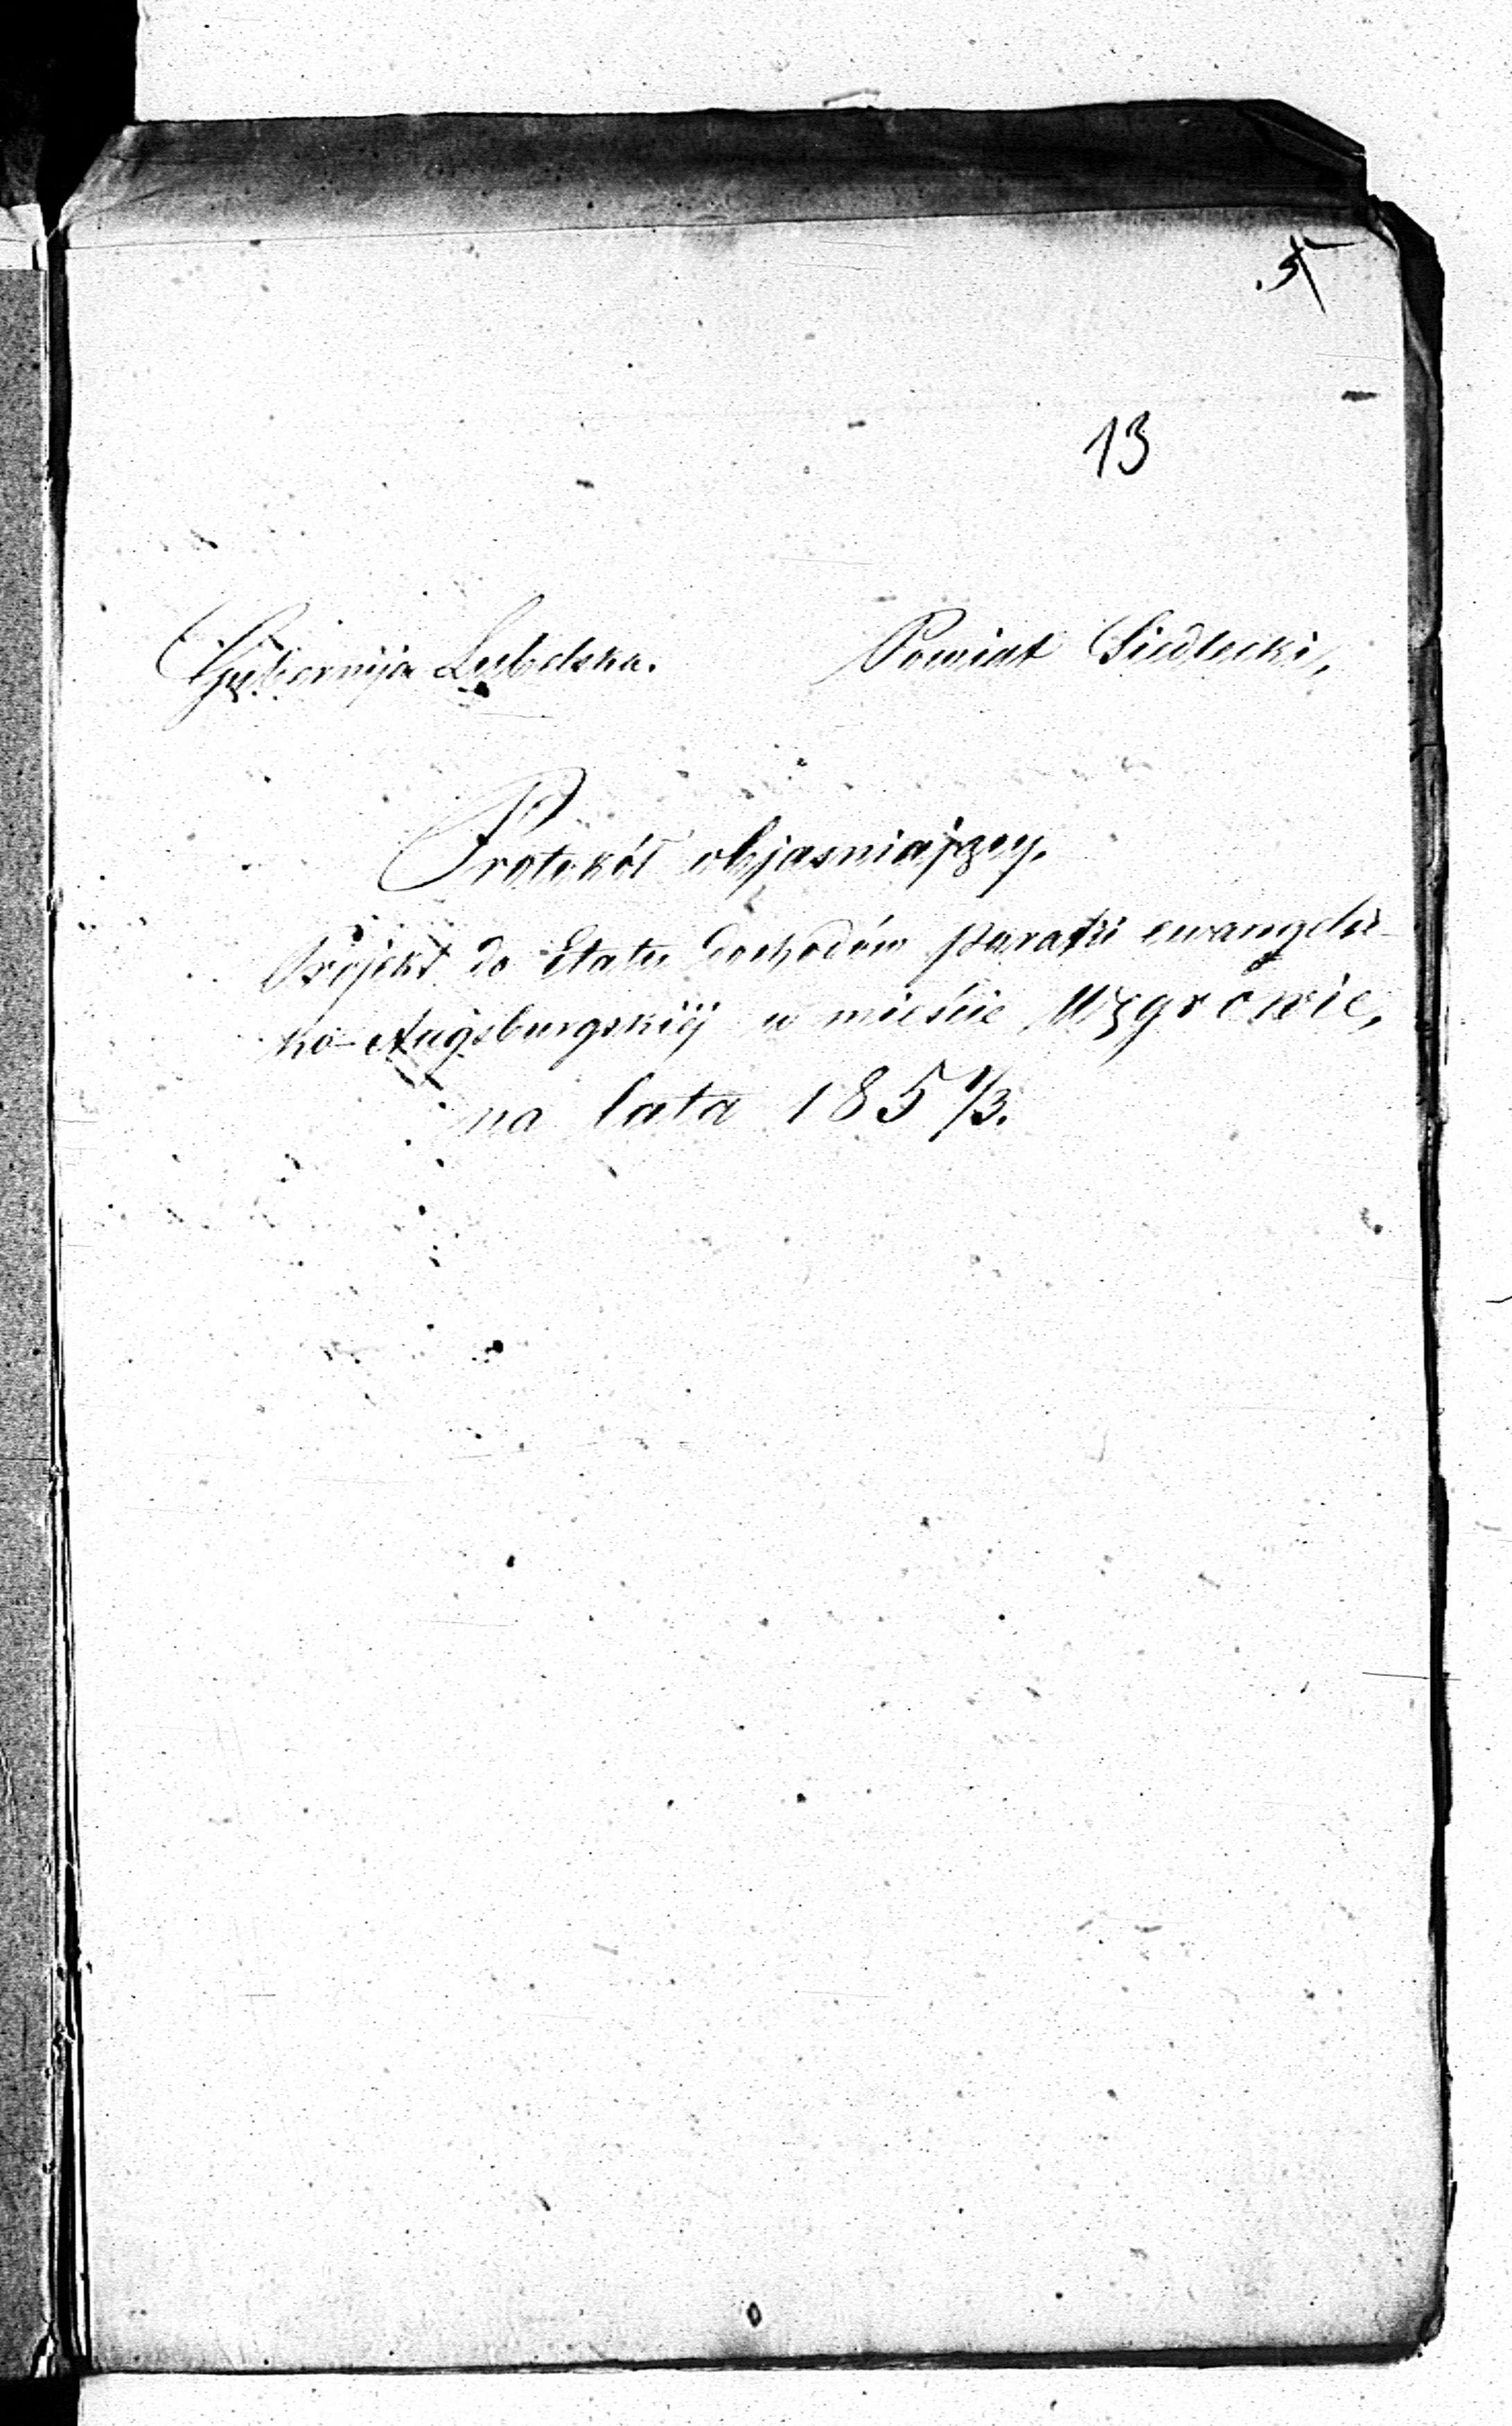 13
Gubernija Lubelska. Powiat Siedlecki,
Protokół objasniający,
Projekt do Etatu dochodów parafii ewangelic-
ko-Augsburgskiéj w mieście Węgrowie,
na lata 185 1/3.